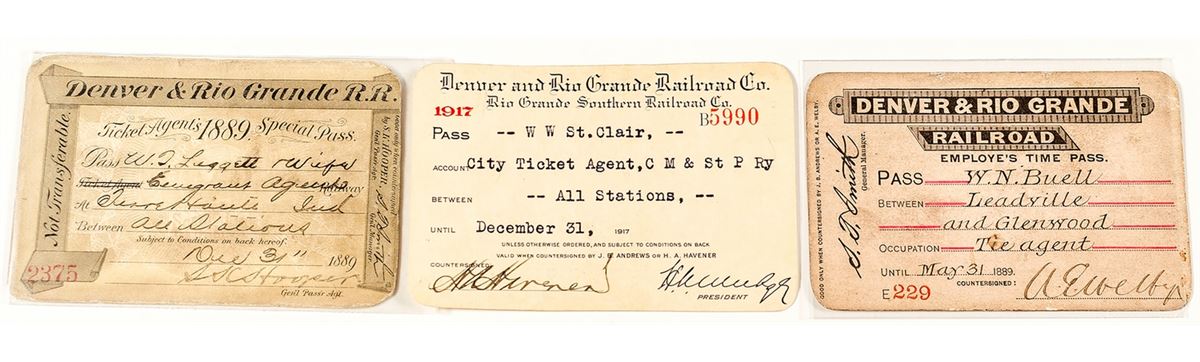 Denver & Rio Grande R.R.
Ticket Agent's 1889 Special Pass
Pass W.T. Leggett & Wife
Ticket Agent Emigrant Agent Railway
At Terre Haute Ind
Between All Stations
Subject to Conditions on back hereof.
Dec 31" 1889
S.K. Hooper
Gen'l Pass'r Agt.
Not Transferable.
Good only when countersigned
by S.K. HOOPER
Gen'l Manager.
2375
Denver and Rio Grande Railroad Co.
Rio Grande Southern Railroad Co.
1917
B5990
PASS -- W W St.Clair, --
ACCOUNT City Ticket Agent, C M & St P Ry
BETWEEN -- All Stations, --
UNTIL December 31, 1917
UNLESS OTHERWISE ORDERED, AND SUBJECT TO CONDITIONS ON BACK
VALID WHEN COUNTERSIGNED BY J. B. ANDREWS OR H. A. HAVENER
COUNTERSIGNED
H A Havener
PRESIDENT
DENVER & RIO GRANDE
RAILROAD
EMPLOYE'S TIME PASS.
PASS W.N. Buell
BETWEEN Leadville
and Glenwood
OCCUPATION Tie agent
UNTIL May 31 1889.
COUNTERSIGNED:
E 229
A.E. Welby
GOOD ONLY WHEN COUNTERSIGNED BY J. B. ANDREWS OR A. E. WELBY.
S.T. Smith
General Manager.